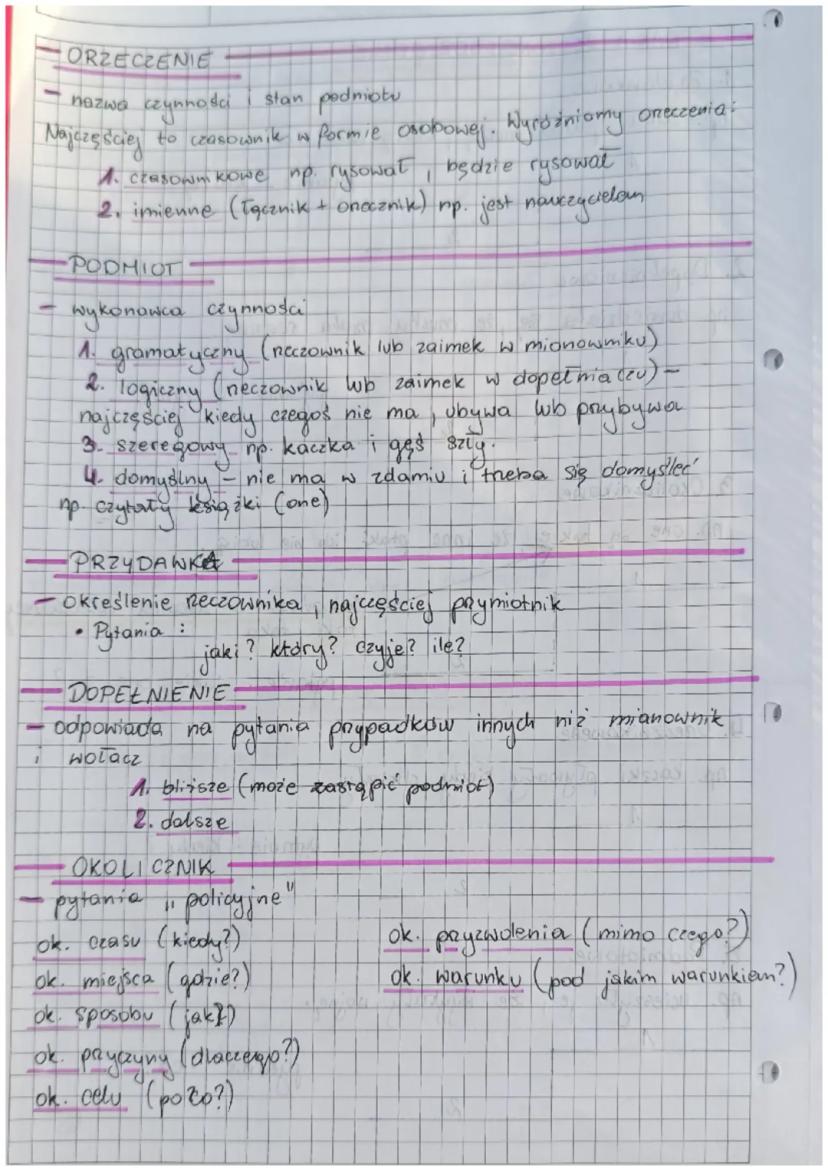 ORZECZENIE
- nazwa czynności i stan podmiotu
Najczęściej to czasownik w formie osobowej. Wyróżniamy orzeczenia:
1. czasownikowe np. rysował, będzie rysował
2. imienne (łącznik + orzecznik) np. jest nauczycielem
PODMIOT
- wykonawca czynności
1. gramatyczny (rzeczownik lub zaimek w mianowniku)
2. logiczny (rzeczownik lub zaimek w dopełniaczu) -
najczęściej kiedy czegoś nie ma, ubywa lub przybywa
3. szeregowy np. kaczka i gęś szły.
4. domyślny - nie ma w zdaniu i trzeba się domyśleć
np. czytały książki (one)
PRZYDAWKA
- określenie rzeczownika, najczęściej przymiotnik
• Pytania:
jaki? który? czyje? ile?
DOPEŁNIENIE
- odpowiada na pytania przypadków innych niż mianownik
i wołacz
1. bliższe (może zastąpić podmiot)
2. dalsze
OKOLICZNIK
- pytania "policyjne"
ok. czasu (kiedy?)
ok. miejsca (gdzie?)
ok. sposobu (jak?)
ok. przyczyny (dlaczego?)
ok. celu (po co?)
ok. przyzwolenia (mimo czego?)
ok. warunku (pod jakim warunkiem?)